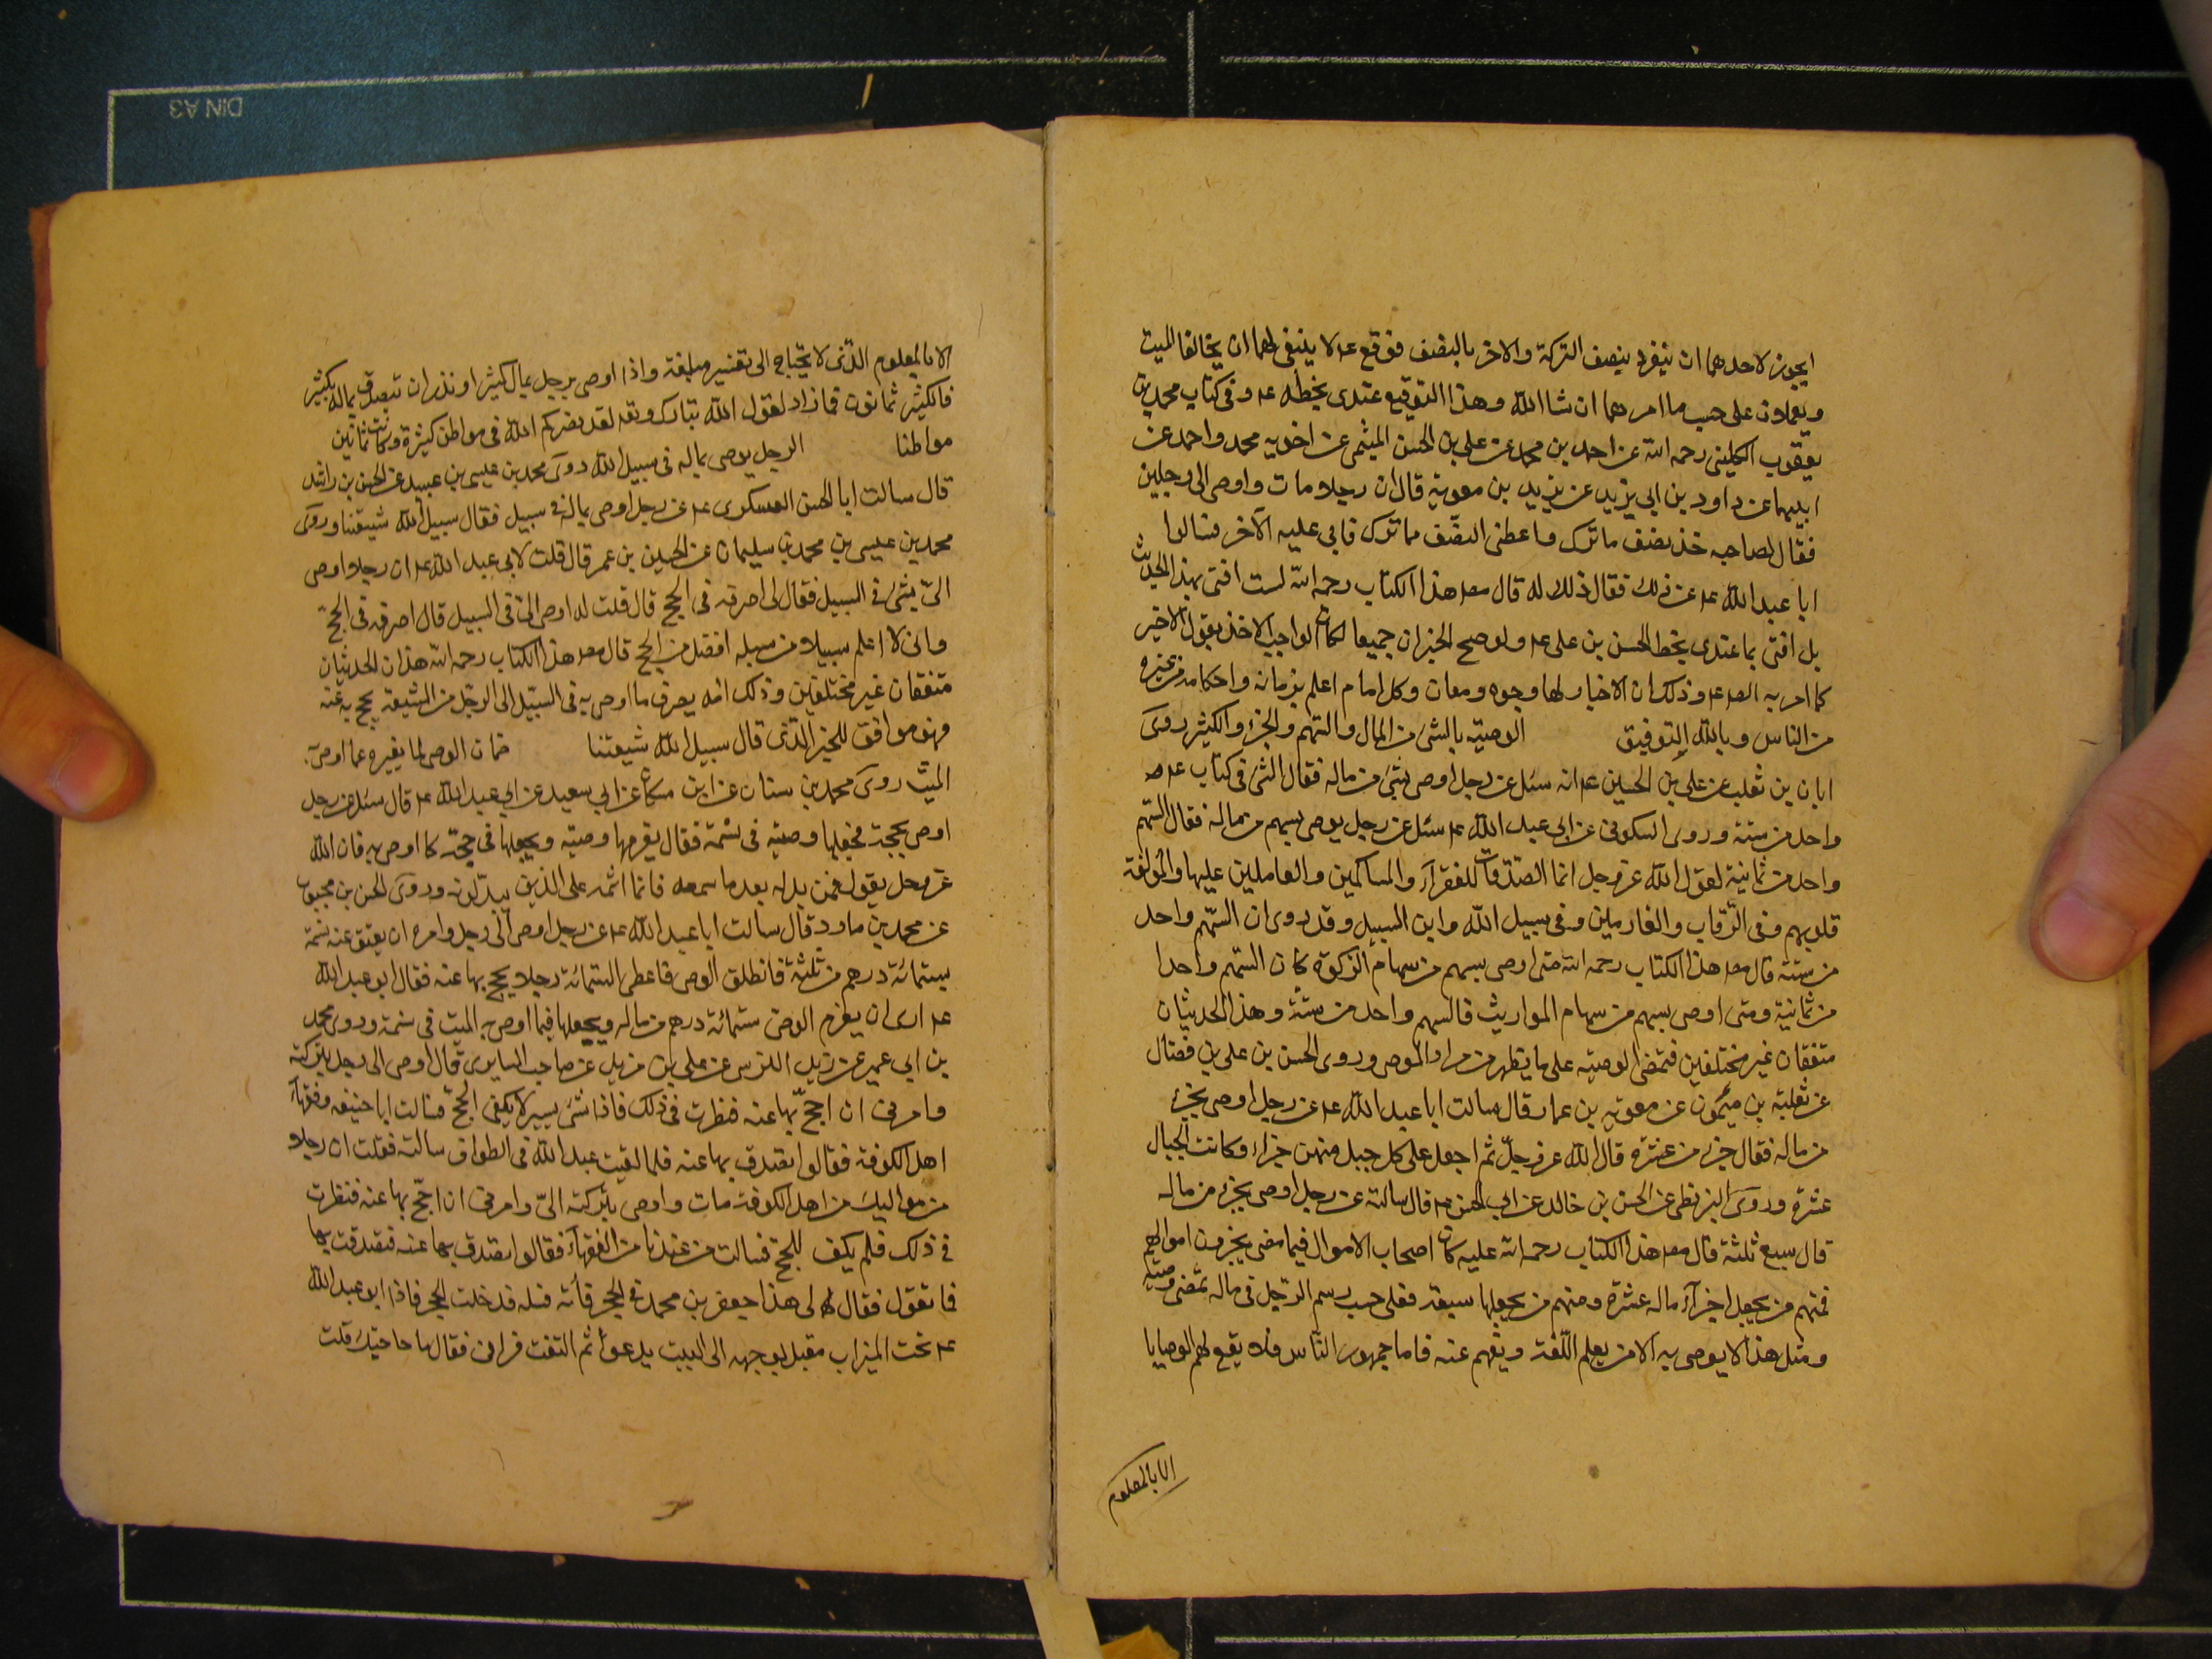 ايجوز لاحدهما ان ينفرد بنصف التركة والاخر بالنصف فوقع عم لا ينبغى لهما ان يخالفا الميت
ويعملان على حسب ما امرهما ان شا الله وهذا التوقيع عندى بخطه عم وفى كتاب محمد بن
يعقوب الكلينى رحمه الله عن احمد بن محمد عن على بن الحسن الميثمى عن اخويه محمد واحمد عن
ابيهما عن داود بن ابى يزيد عن بريد بن معوية قال ان رجلا مات واوصى الى رجلين
فقال لصاحبه خذ نصف ما ترك واعطنى النصف مما ترك فابى عليه الاخر فسالوا
ابا عبد الله عم عن ذلك فقال ذلك له قال مص هذا الكتاب رحمه الله لست افتى بهذا الحديث
بل افتى بما عندى بخط الحسن بن على عم ولو صح الخبران جميعا لكان الواجب الاخذ بقول الاخير
كما امر به الصـ عم وذلك ان الاخبار لها وجوه ومعان وكل امام اعلم بزمانه واحكامه من غيره
من الناس وبالله التوفيق الوصية بالشئ من المال والسهم والجزء والكثير روى
ابان بن تغلب عن على بن الحسين عم انه سئل عن رجل اوصى بشئ من ماله فقال الشئ فى كتاب على عم
واحد من ستة وروى السكونى عن ابى عبد الله عم سئل عن رجل يوصى بسهم من ماله فقال السهم
واحد من ثمانية لقول الله عز وجل انما الصدقات للفقرآء والمساكين والعاملين عليها والمؤلفة
قلوبهم وفى الرقاب والغارمين وفى سبيل الله وابن السبيل وقد روى ان السهم واحد
من ستة قال مص هذا الكتاب رحمه الله متى اوصى بسهم من سهام الزكوة كان السهم واحدا
من ثمانية ومتى اوصى بسهم من سهام المواريث فالسهم واحد من ستة وهذا الحديثان
متفقان غير مختلفين فتمضى الوصية على ما يظهر من مراد الموصى وروى الحسن بن على بن فضال
عن ثعلبة بن ميمون عن معوية بن عمار قال سالت ابا عبد الله عم عن رجل اوصى بجزء
من ماله فقال جزء من عشرة قال الله عز وجل ثم اجعل على كل جبل منهن جزاء وكانت الجبال
عشرة وروى البزنطى عن الحسن بن خالد عن ابى الحسن عم قال سالته عن رجل اوصى بجزء من ماله
قال سبع ثلثة قال مص هذا الكتاب رحمه الله عليه كان اصحاب الاموال فيما مضى يجزون اموالهم
فمنهم من يجعل اجزآء ماله عشرة ومنهم من يجعلها سبعة فعلى حسب رسم الرجل فى ماله تمضى وصيته
ومثل هذا لا يوصى به الا من يعلم اللغة ويفهم عنه فاما جمهور الناس فلا يقع لهم الوصايا
الا بالمعلوم
الا بالمعلوم الذى لا يحتاج الى تفسير مبلغة واذا اوصى رجل بمال كثير او نذر ان تيصدق بماله بكثير
فالكثير ثمانون فما زاد لقول الله تبارك وتعـ لقد نصركم الله فى مواطن كثيرة وكانت ثمانين
مواطنا الرجل يوصى بماله فى سبيل الله روى محمد بن عيسى بن عبيد عن الحسن بن راشد
قال سالت ابا الحسن العسكرى عم عن رجل اوصى بماله فى سبيل فقال سبيل الله شيعتنا وروى
محمد بن عيسى بن محمد بن سليمان عن الحسين بن عمر قال قلت لابى عبد الله عم ان رجلا اوصى
الى بشئ فى السبيل فقال لى اصرفه فى الحج قال قلت له اوصى الى فى السبيل قال اصرفه فى الحج
وانى لا اعلم سبيلا من سبله افضل من الحج قال مص هذا الكتاب رحمه الله هذان الحديثان
متفقان غير مختلفين وذلك انه يصرف ما اوصى به فى السبيل الى الرجل من الشيعة يحج به عنه
فهو موافق للخبر الذى قال سبيل الله شيعتنا ضمان الوصى لما يغيره عما اوصى به
الميت روى محمد بن سنان عن ابن مسكان عن ابى سعيد عن ابى عبد الله عم قال سئل عن رجل
اوصى بحجة فجعلها وصيه فى نسمة فقال يغرمها وصيه ويجعلها فى حجة كما اوصى به فان الله
عز وجل يقول فمن بدله بعد ما سمعه فانما اثمه على الذين يبدلونه وروى الحسن بن محبوب
عن محمد بن مارد قال سالت ابا عبد الله عم عن رجل اوصى الى رجل وامره ان يعتق عنه نسمة
بستمائة درهم من ثلثة فانطلق الوصى فاعطى الستمائة رجلا يحج بها عنه فقال ابو عبد الله
عم ارى ان يغرم الوصى ستمائة درهم من ماله ويجعلها فيما اوصى به الميت فى نسمة وروى محمد
بن ابى عمير عن زيد النرسى عن على بن مزيد عن صاحب السابرى قال اوصى الى رجل بتركته
وامرنى ان احج بها عنه فنظرت فى ذلك فاذا شئ يسير لا يكفى الحج فسالت ابا حنيفه وفقهآء
اهل الكوفة فقالوا تصدق بها عنه فلما لقيت عبد الله فى الطواف سالته فقلت ان رجلا
من مواليك من اهل الكوفة مات واوصى بتركته الى وامرنى ان احج بها عنه فنظرت
فى ذلك فلم يكف للحج فسالت من عندنا من الفقهآء فقالوا تصدق بها عنه فتصدقت بها
فما تقول فقال لى هذا جعفر بن محمد فى الحجر فأته فسله فدخلت الحجر فاذا ابو عبد الله
عم تحت الميزاب مقبل بوجهه الى البيت يدعو ثم التفت فرانى فقال ما حاجتك قلت